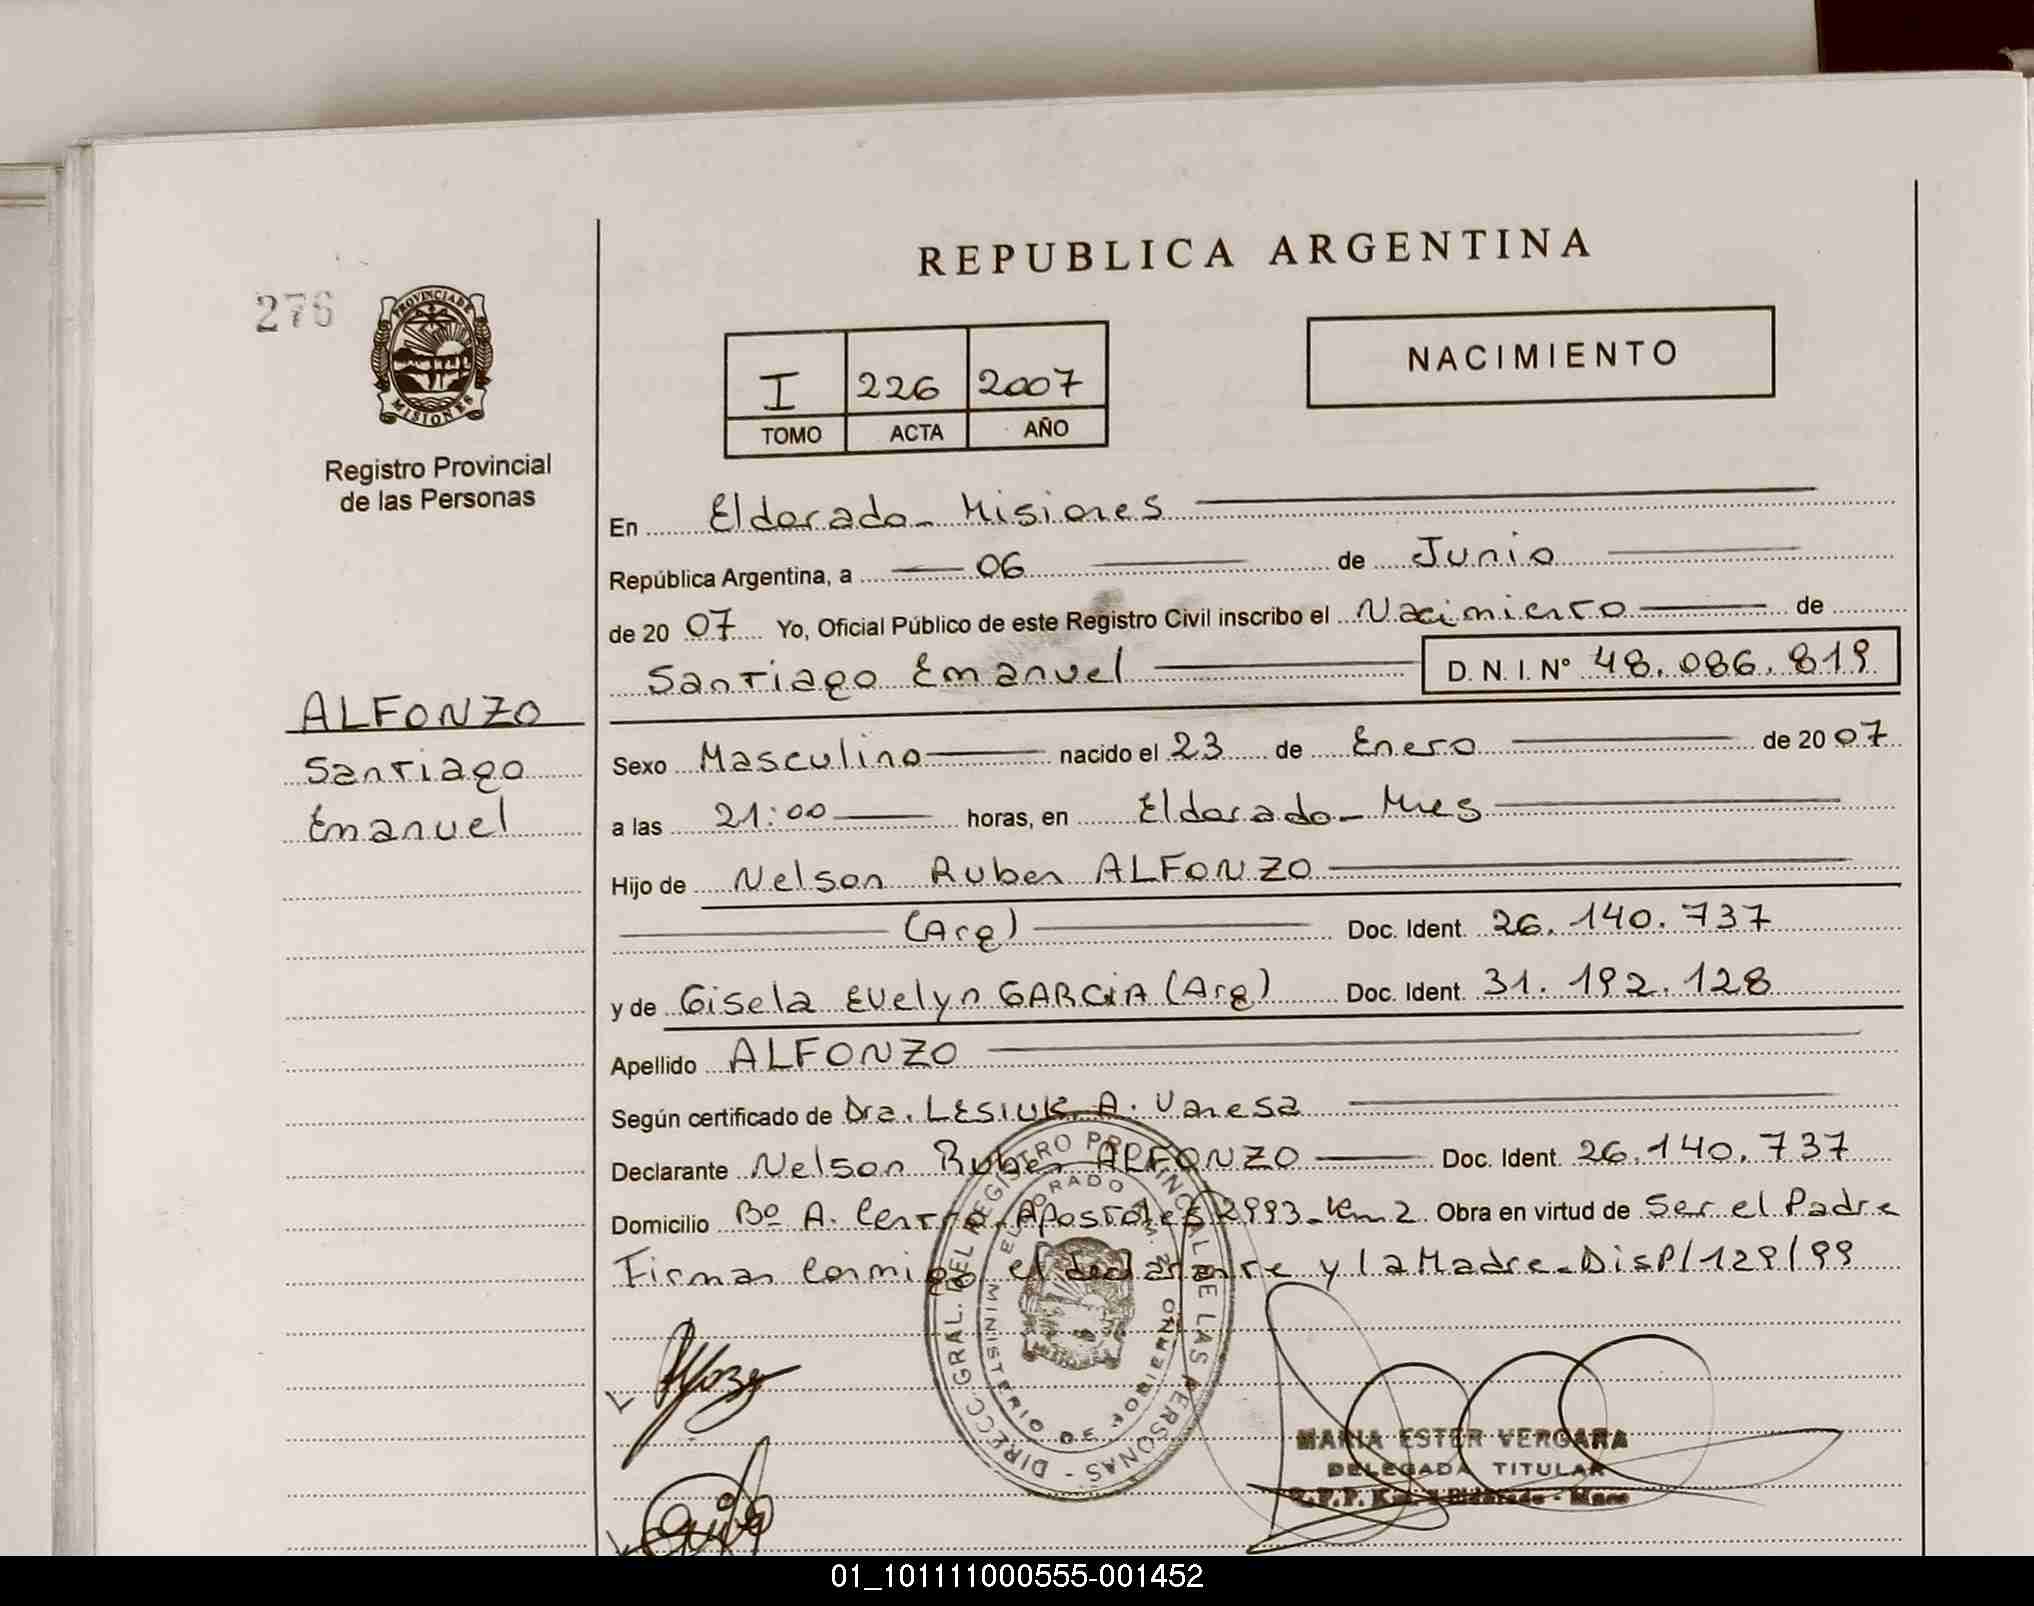 REPUBLICA ARGENTINA
276
PROVINCIA DE
MISIONES
NACIMIENTO
I 226 2007
TOMO ACTA AÑO
Registro Provincial
de las Personas
En Eldorado - Misiones
República Argentina, a 06 de Junio
de 2007 Yo, Oficial Público de este Registro Civil inscribo el Nacimiento de
Santiago Emanuel D. N. I. N° 48.086.819
ALFONZO
Santiago
Emanuel
Sexo Masculino nacido el 23 de Enero de 2007
a las 21:00 horas, en Eldorado - Mnes
Hijo de Nelson Ruben ALFONZO
(Arg) Doc. Ident. 26.140.737
y de Gisela Evelyn GARCIA (Arg) Doc. Ident. 31.192.128
Apellido ALFONZO
Según certificado de Dra. LESIUK A. Vanesa
Declarante Nelson Ruben ALFONZO Doc. Ident. 26.140.737
Domicilio Bº A. Centro. Apostoles 2993 - Km 2 Obra en virtud de Ser el Padre
Firman Conmigo el declarante y la Madre - Disp/129/99
DIRECC. GRAL. DEL REGISTRO PROVINCIAL DE LAS PERSONAS -
MINISTERIO DE GOBIERNO
ELDORADO KM. 2
MARIA ESTER VERGARA
DELEGADA TITULAR
R.P.P. Km. 2 Eldorado - Mnes
01_101111000555-001452